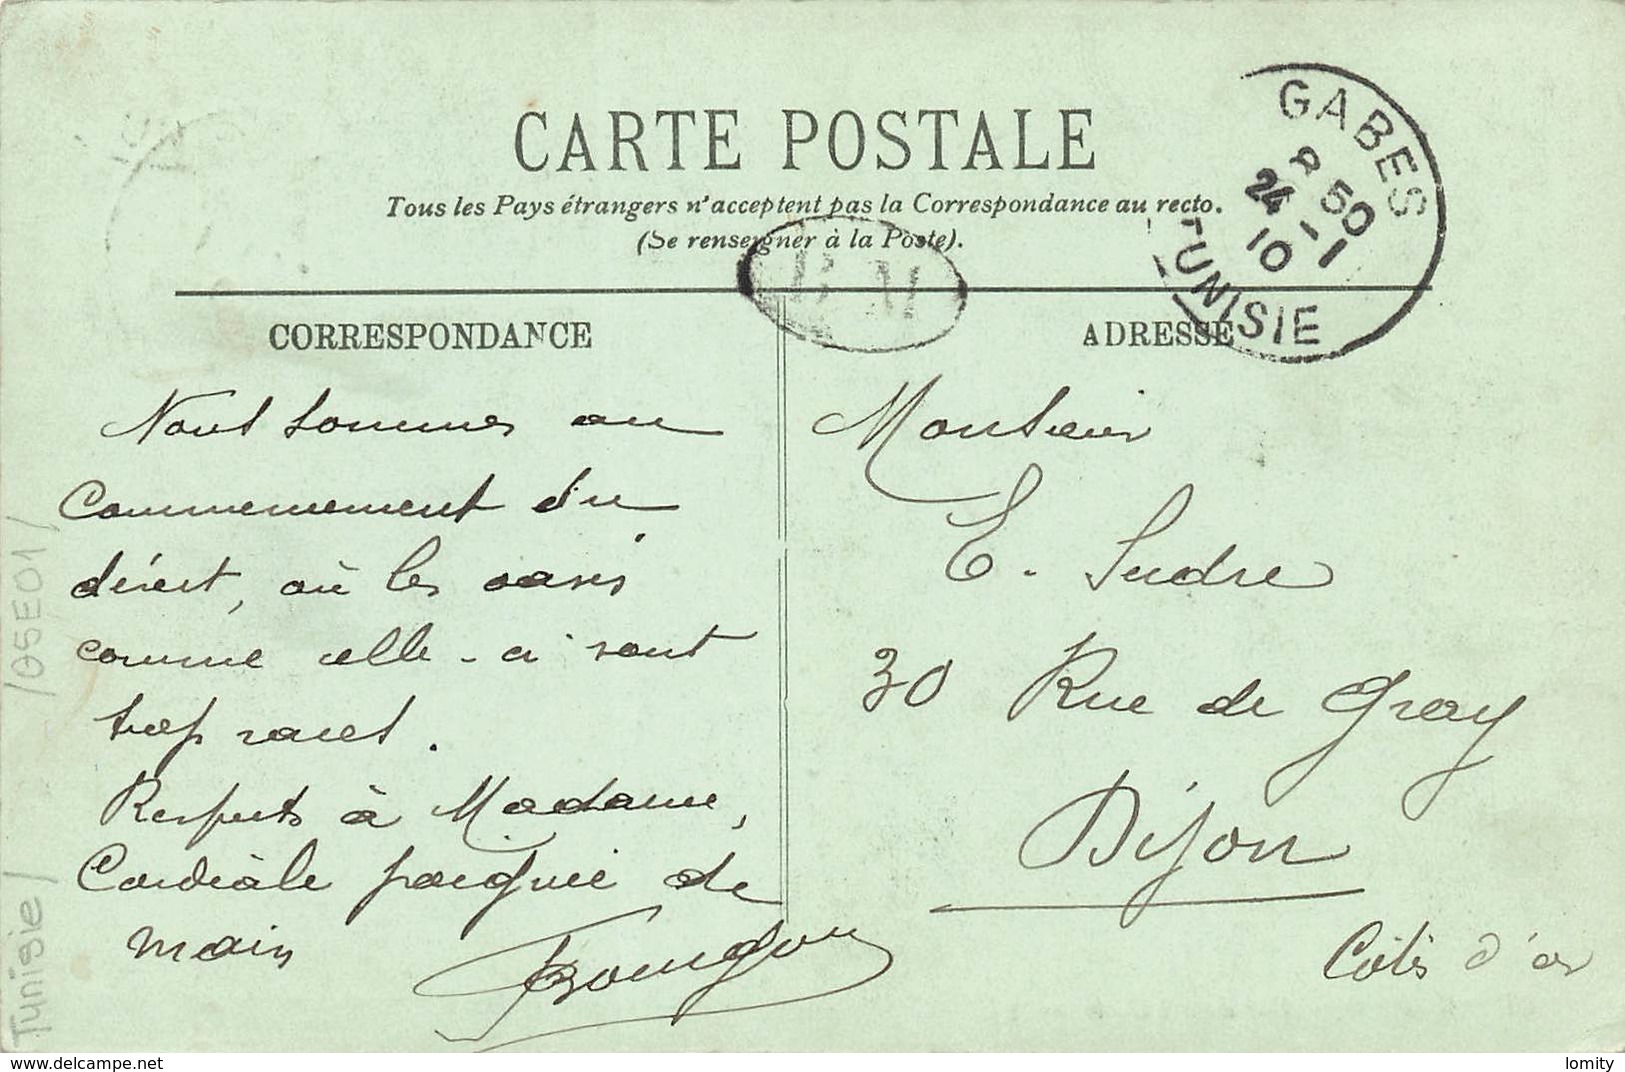 CARTE POSTALE
Tous les Pays étrangers n'acceptent pas la Correspondance au recto.
(Se renseigner à la Poste).
GABES
8 50
24 - 1
10
TUNISIE
B M
CORRESPONDANCE
ADRESSE
Nous sommes au
Commencement du
désert, où les oasis
comme celle-ci sont
trop rares.
Respects à Madame,
Cordiale poignée de
main
Monsieur
E. Sudre
30 Rue de Gray
Dijon
Côte d'or
Tunisie / /05E01/
www.delcampe.net
lomity